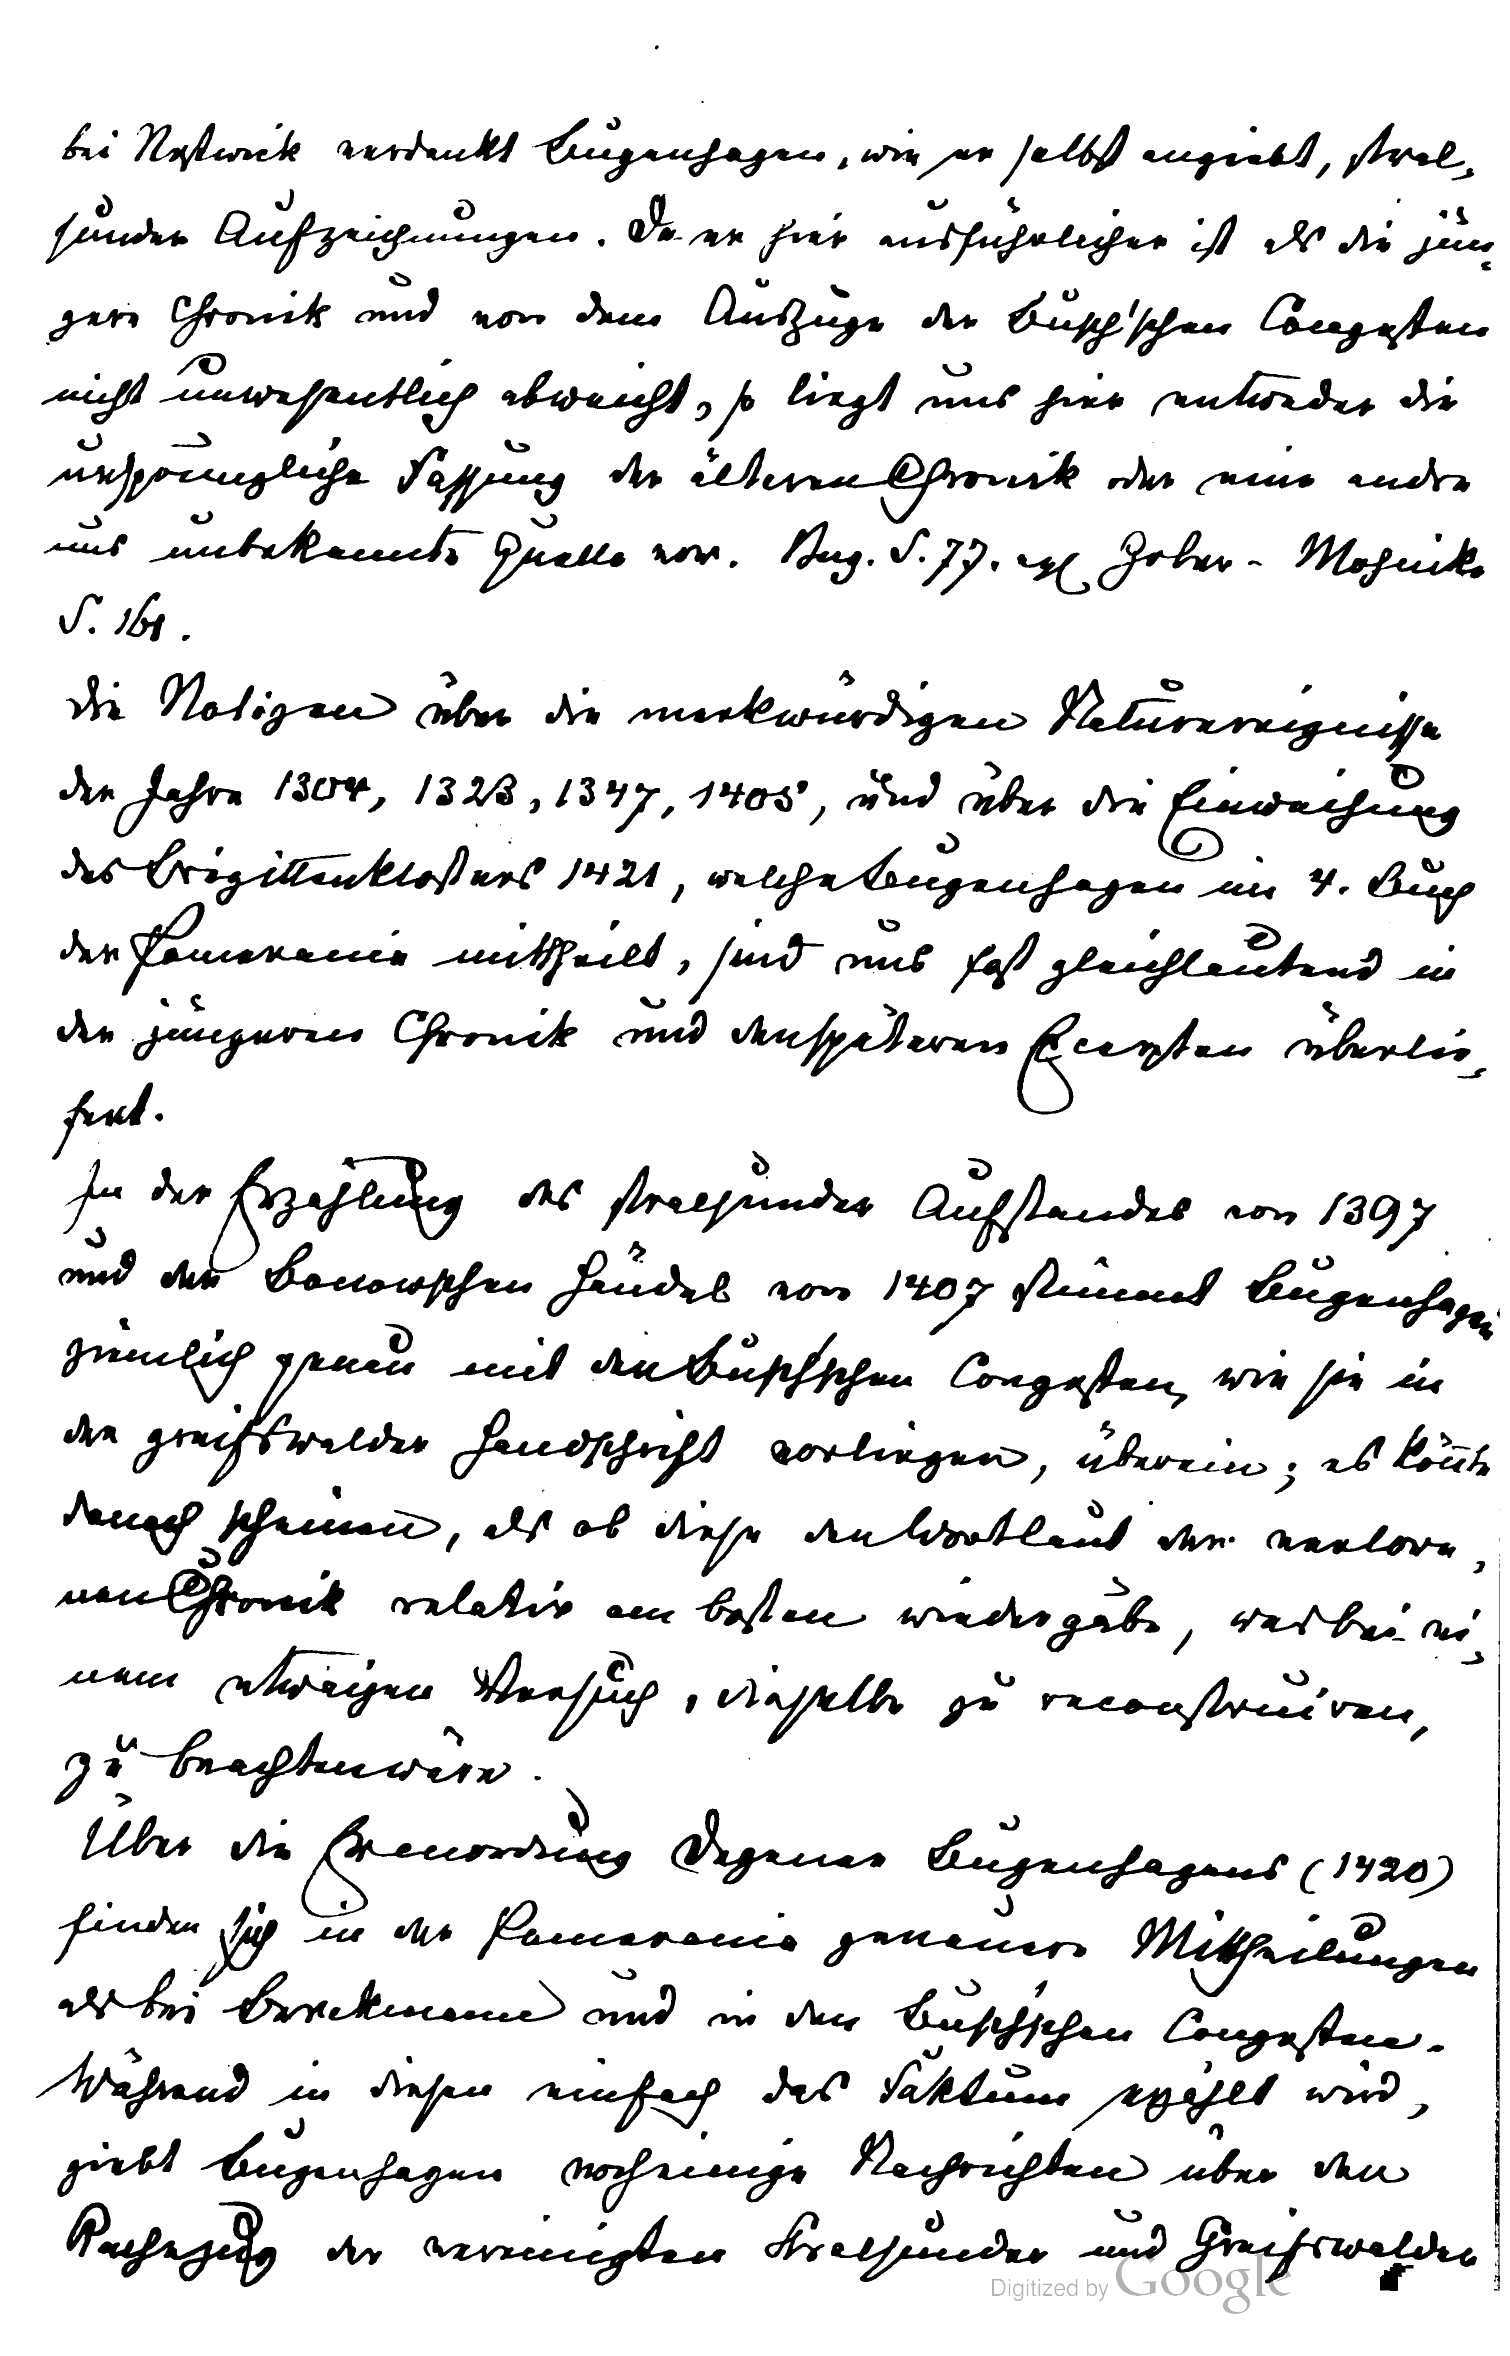 bei Nestwick verdankt Bugenhagen, wie er selbst angiebt, stral-
sunder Aufzeichnungen. Da er hier ausführlicher ist als die jün-
gere Chronik und von dem Auszuge der Busch'schen Congesten
nicht unwesentlich abweicht, so liegt uns hier entweder die
ursprüngliche Fassung der älteren Chronik oder eine andre
uns unbekannte Quelle vor. Bug. S. 77. vgl Zober - Mohnike
S. 161.
Die Notizen über die merkwürdigen Naturereignisse
der Jahre 1304, 1323, 1347, 1405, und über die Einweihung
des Brigittenklosters 1421, welche Bugenhagen im 4. Buch
der Pomerania mittheilt, sind uns fast gleichlautend in
der jüngeren Chronik und den späteren Excerpten überlie-
fert.
In der Erzählung des stralsunder Aufstandes von 1397
und der Bonowschen Händel von 1407 stimmt Bugenhagen
ziemlich genau mit den Busch'schen Congesten, wie sie in
der greifswalder Handschrift vorliegen, überein; es könnte
danach scheinen, als ob diese den Wortlaut der verlore-
nen Chronik relativ am besten wiedergäbe, was bei ei-
nem etwaigen Versuch, dieselbe zu reconstruiren,
zu beachten wäre.
Über die Ermordung Degener Bugenhagens (1420)
finden sich in der Pomerania genauere Mittheilungen
als bei Berckmann und in den Busch'schen Congesten.
Während in diesen einfach das Faktum erzählt wird,
giebt Bugenhagen noch einige Nachrichten über den
Rachezug der vereinigten Stralsunder und Greifswalder
Digitized by Google